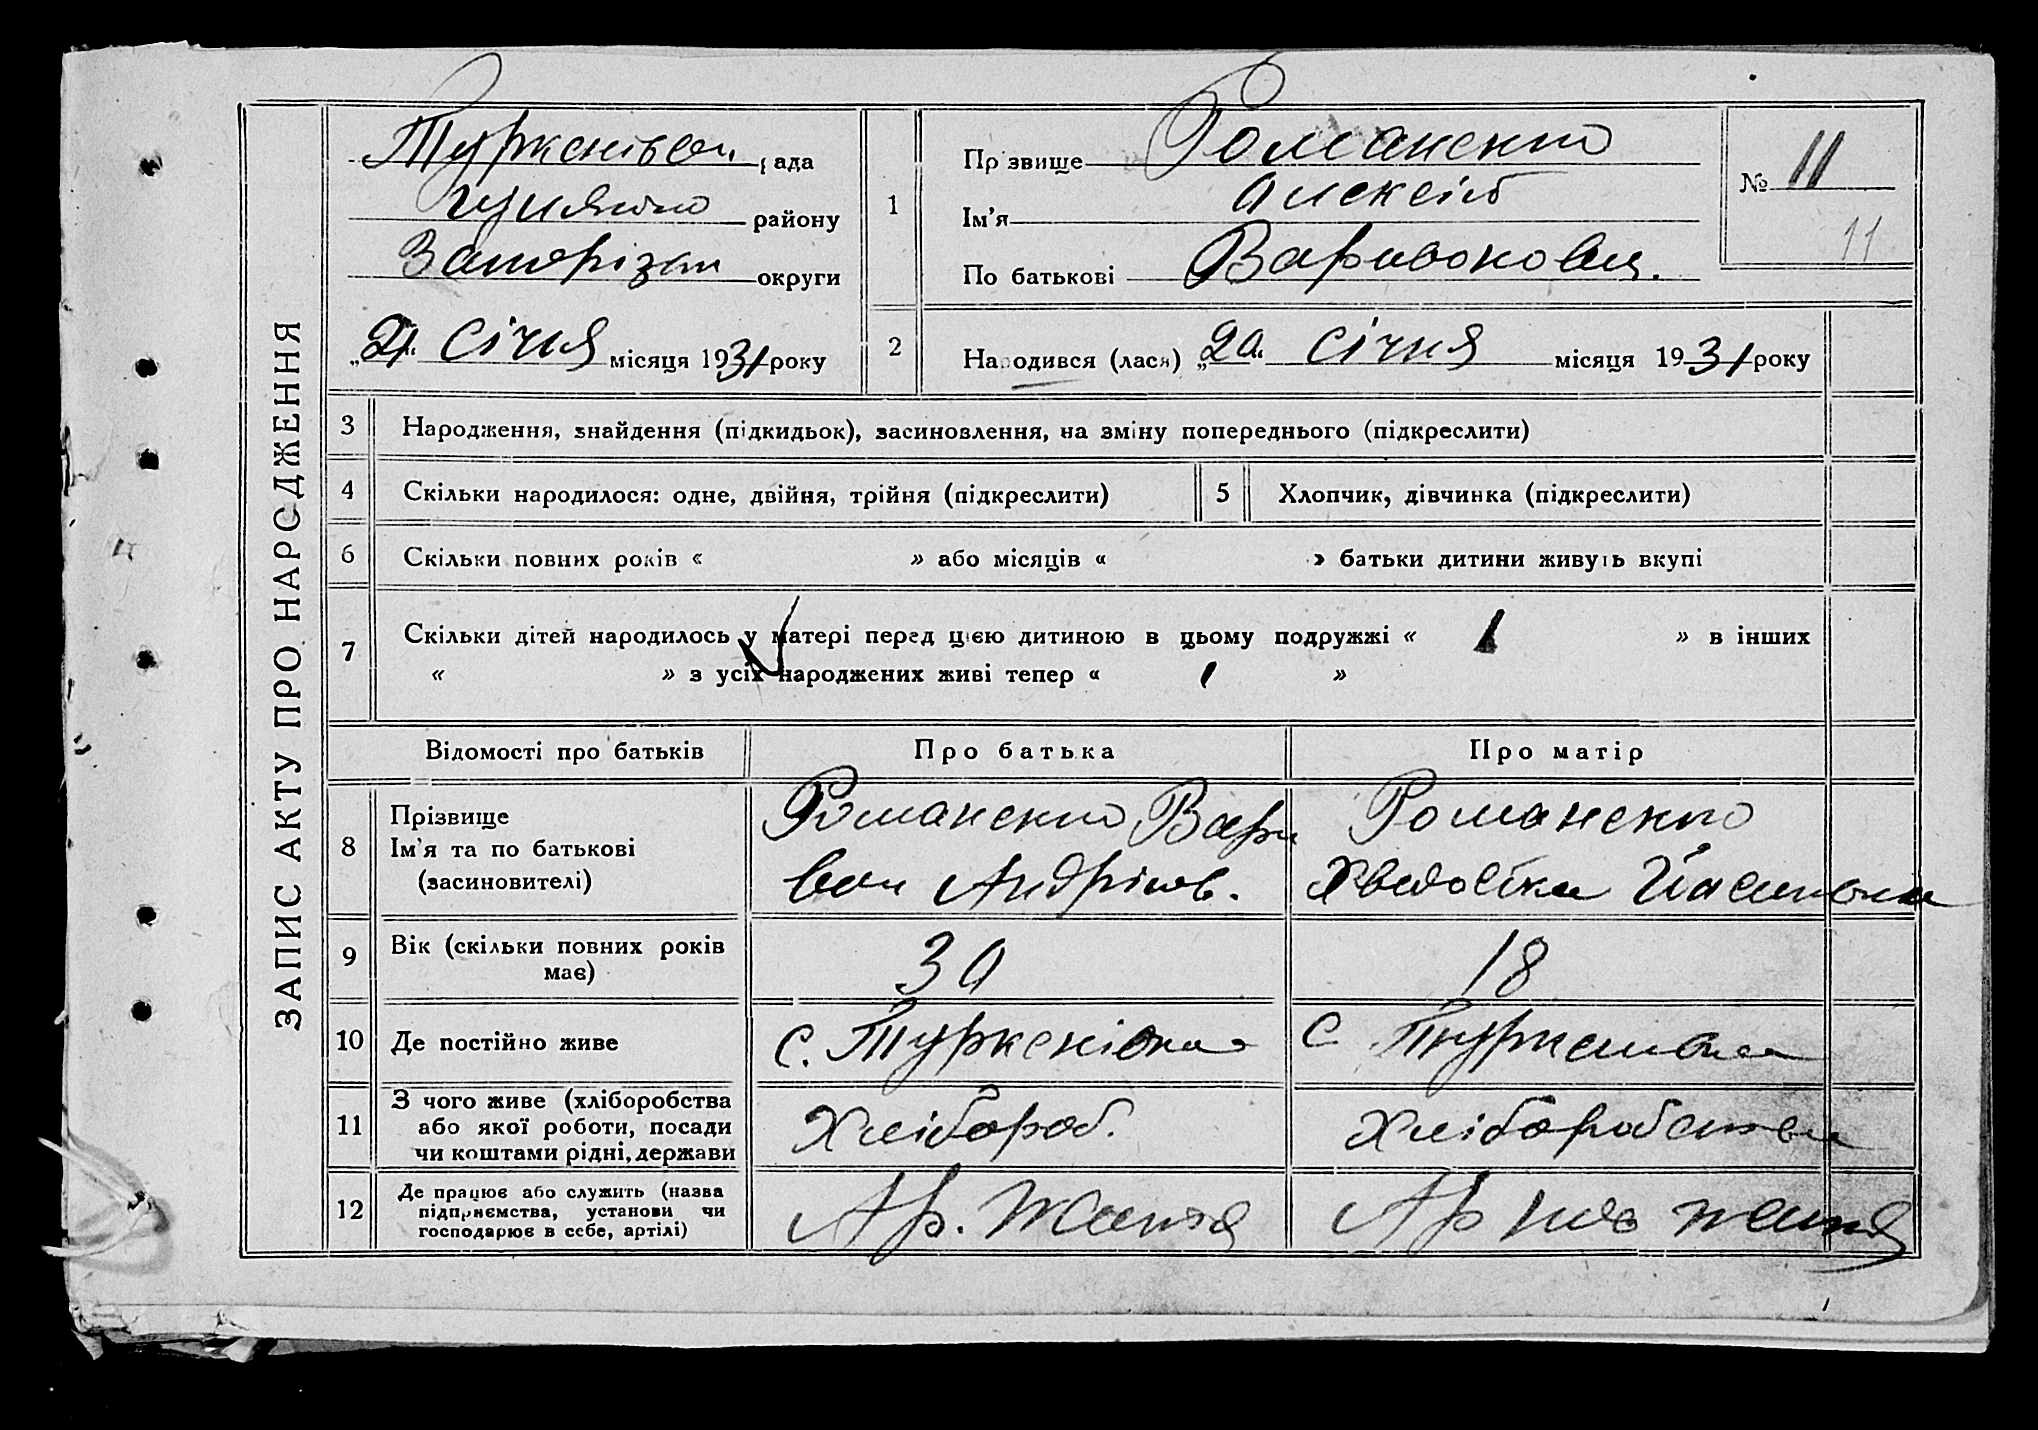 ЗАПИС АКТУ ПРО НАРОДЖЕННЯ
рада
району
округи
" 21 " січня місяця 1931 року
1
Прізвище Романенко
Ім'я Алексій
По батькові Варивонович.
№ 11
11
2
Народився (лася) " 20 " січня місяця 1931 року
3 Народження, знайдення (підкидьок), засиновлення, на зміну попереднього (підкреслити)
4 Скільки народилося: одне, двійня, трійня (підкреслити)
5 Хлопчик, дівчинка (підкреслити)
6 Скільки повних років « » або місяців « » батьки дитини живуть вкупі
7 Скільки дітей народилось у матері перед цією дитиною в цьому подружжі « 1 » в інших
« » з усіх народжених живі тепер « 1 »
Відомості про батьків
Про батька
Про матір
8
Прізвище
Ім'я та по батькові
(засиновителі)
Романенко Вари
вон Андріїв.
Романенко
9
Вік (скільки повних років
має)
30
18
10 Де постійно живе
с. Туркенівка
с. Туркенівка
11
З чого живе (хліборобства
або якої роботи, посади
чи коштами рідні, держави
Хлібороб.
Хліборобства
12
Де працює або служить (назва
підприємства, установи чи
господарює в себе, артілі)